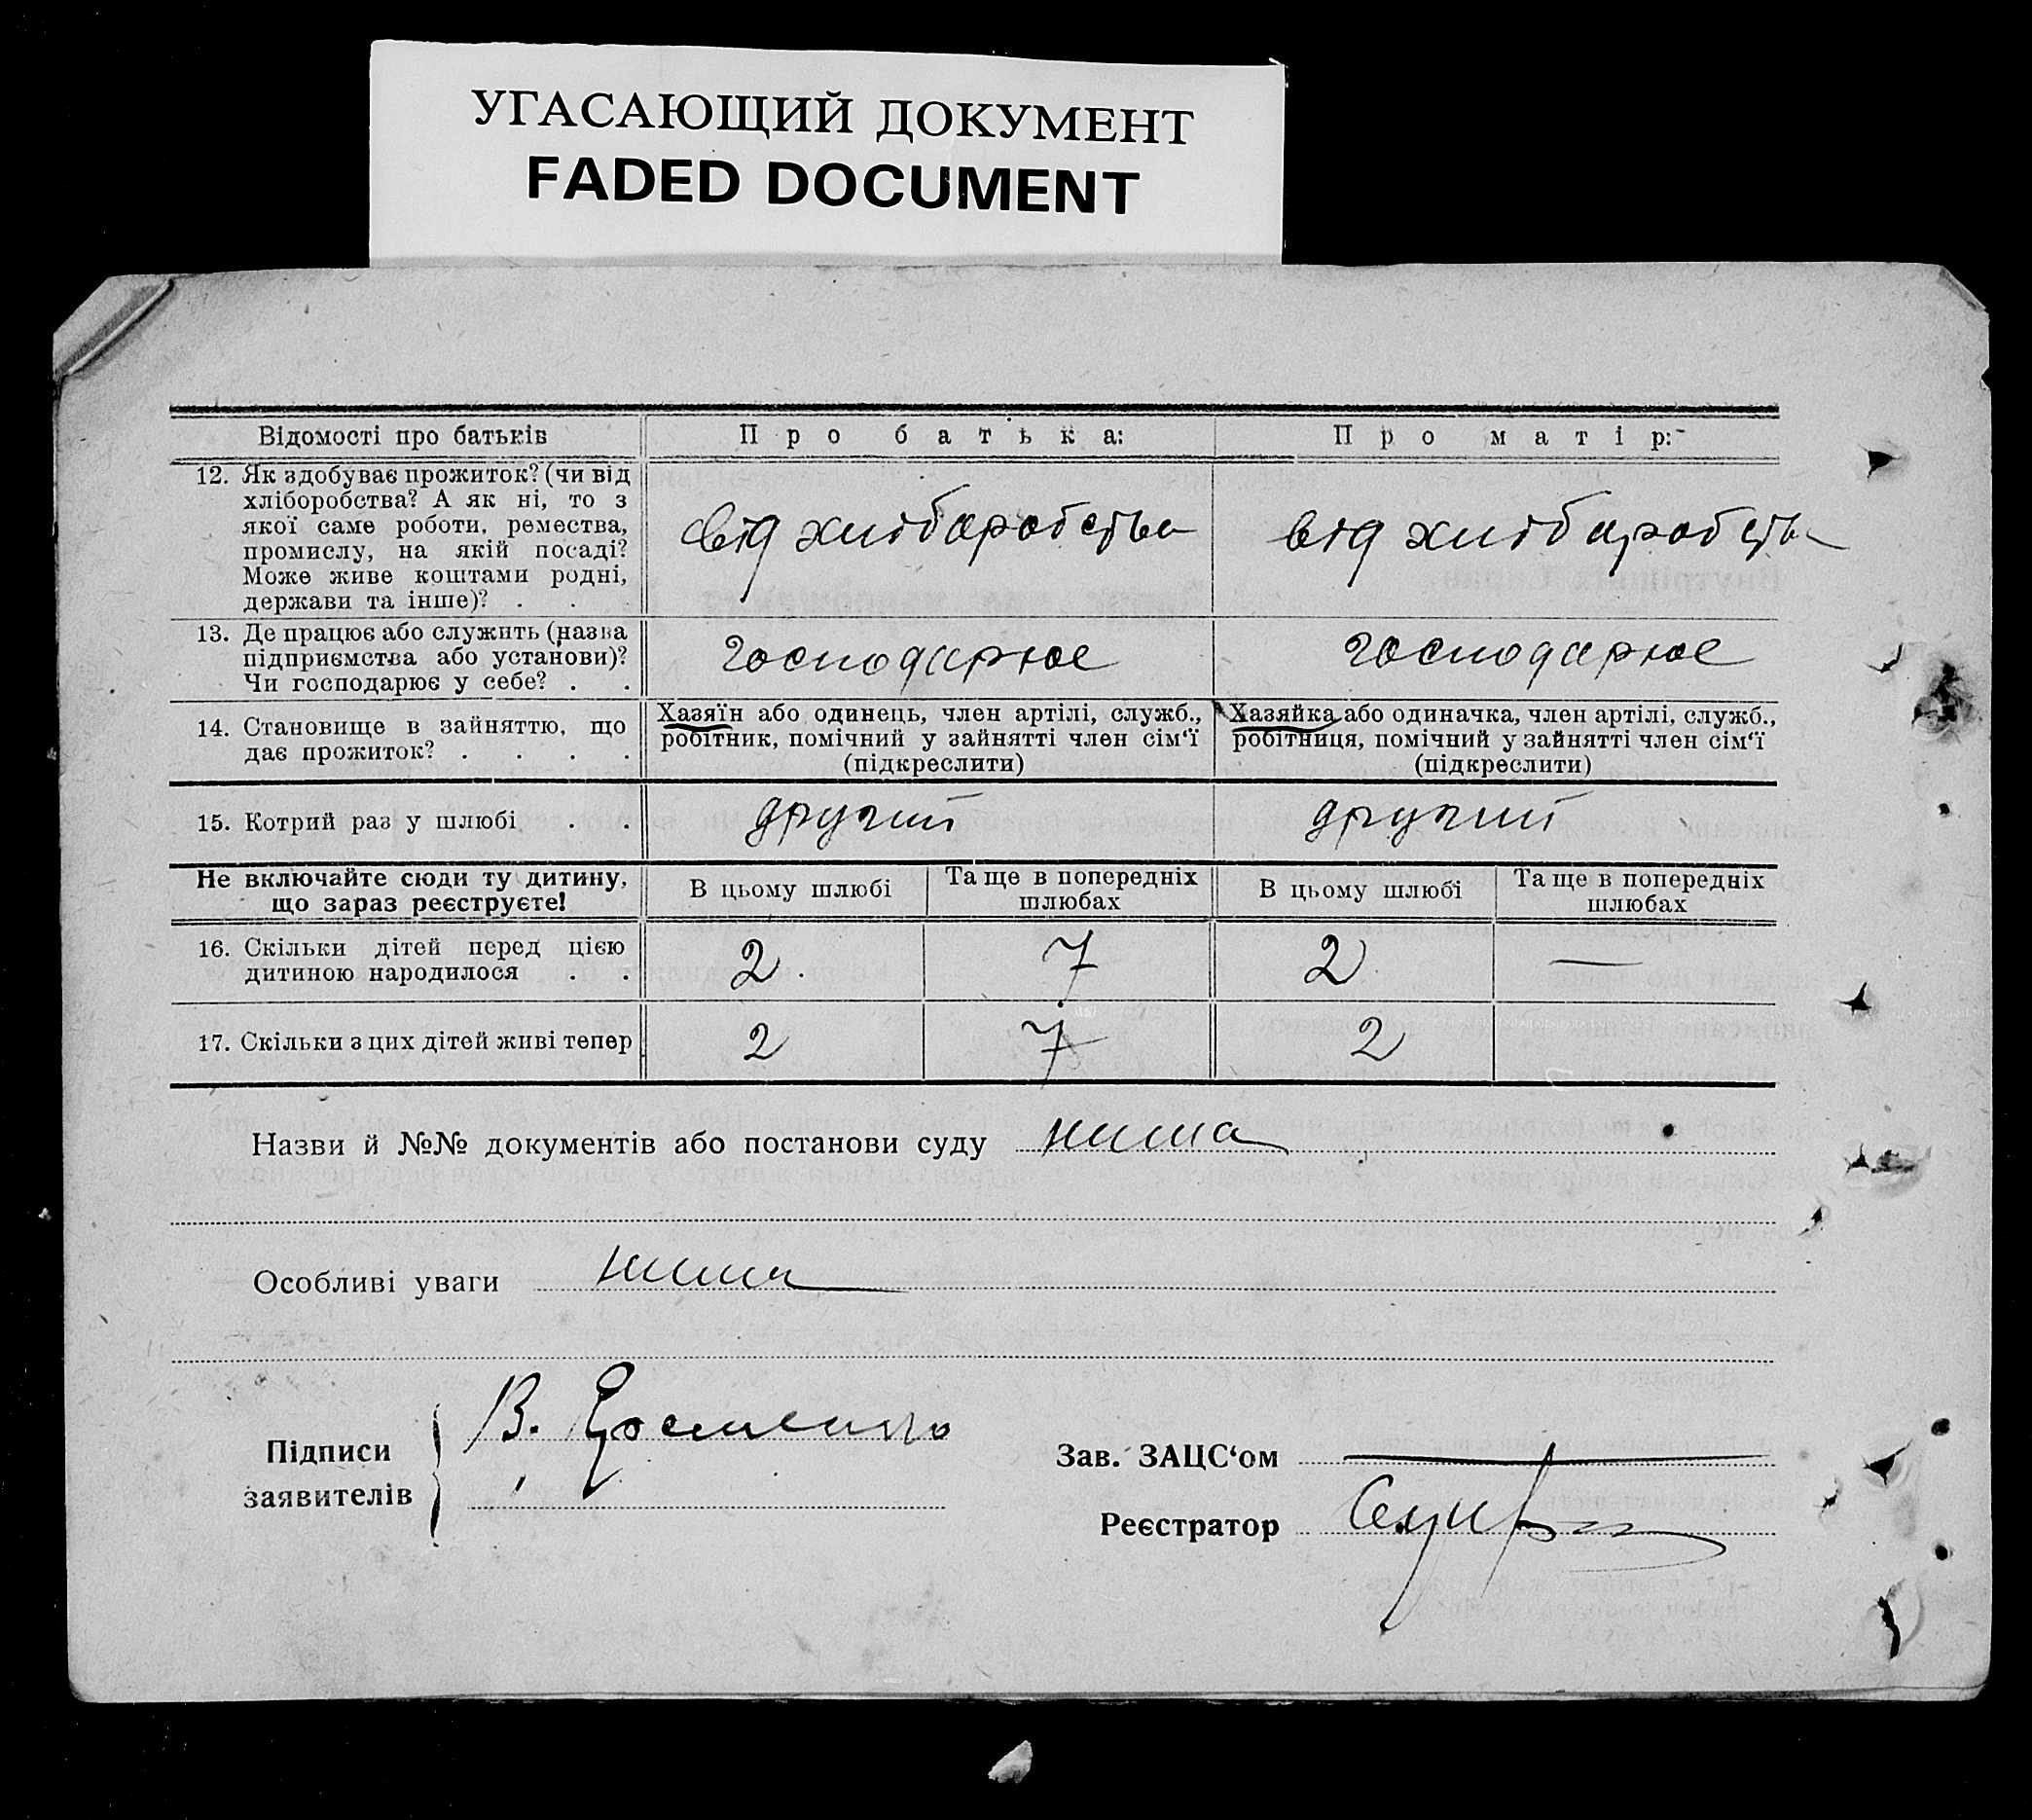 УГАСАЮЩИЙ ДОКУМЕНТ
FADED DOCUMENT
Відомості про батьків
Про батька:
Про матір:
12. Як здобуває прожиток? (чи від
хліборобства? А як ні, то з
якої саме роботи, ремества,
промислу, на якій посаді?
Може живе коштами родні,
держави та інше)? . .
від хліборобства
від хліборобства
13. Де працює або служить (назва
підприємства або установи)?
Чи господарює у себе? . .
господарює
господарює
14. Становище в зайняттю, що
дає прожиток? . . . .
Хазяїн або одинець, член артілі, служб.,
робітник, помічний у зайнятті член сім'ї
(підкреслити)
Хазяйка або одиначка, член артілі, служб.,
робітниця, помічний у зайнятті член сім'ї
(підкреслити)
15. Котрий раз у шлюбі . .
другий
другий
Не включайте сюди ту дитину,
що зараз реєструєте!
В цьому шлюбі
Та ще в попередніх
шлюбах
В цьому шлюбі
Та ще в попередніх
шлюбах
16. Скільки дітей перед цією
дитиною народилося . .
2.
7
2
—
17. Скільки з цих дітей живі тепер
2
7
2
Назви й №№ документів або постанови суду нима
Особливі уваги нима
Підписи
заявителів
В.
Зав. ЗАЦС'ом
Реєстратор